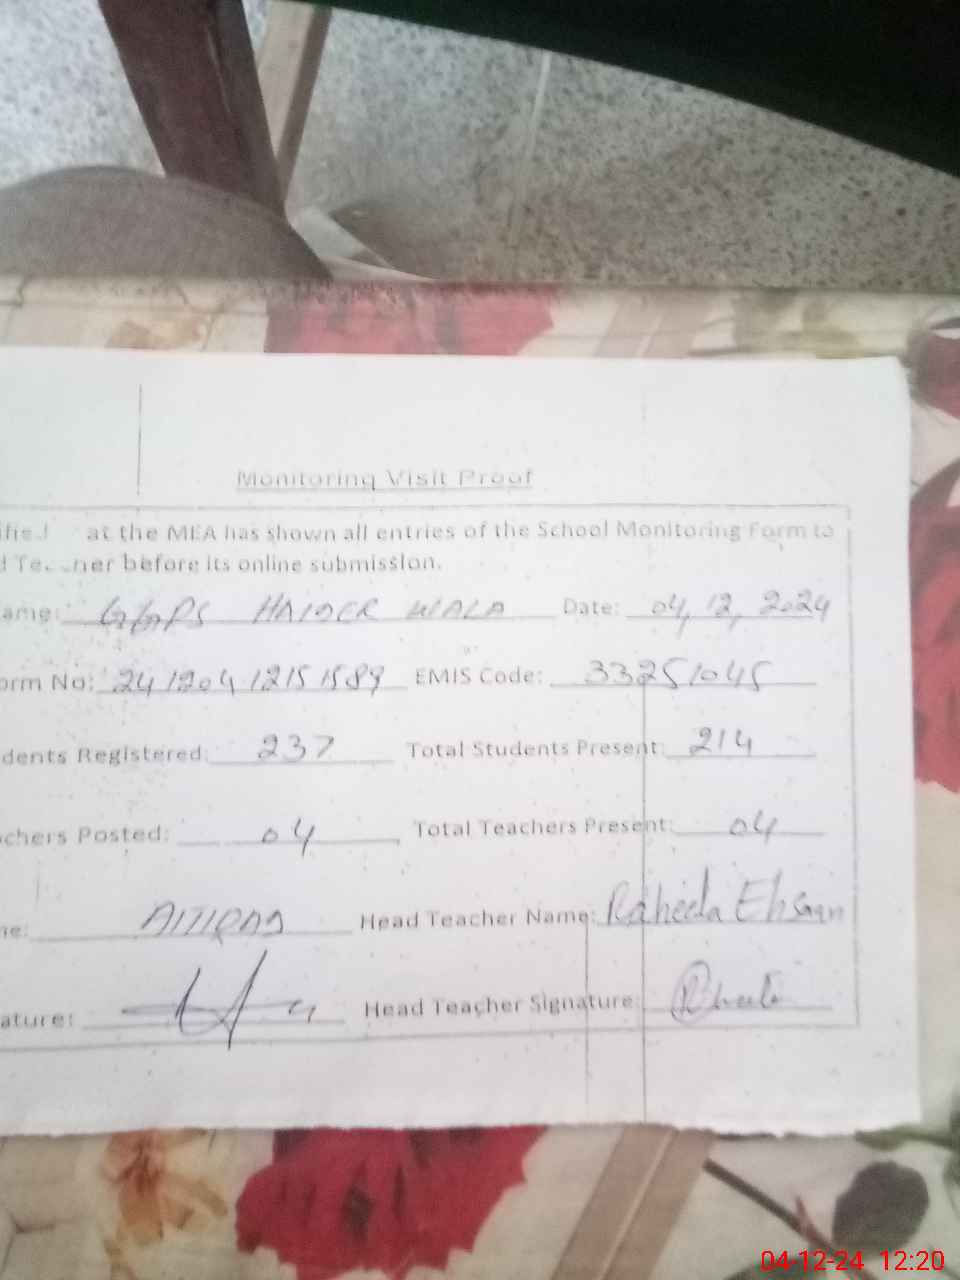 Monitoring Visit Proof
at the MEA has shown all entries of the School Monitoring Form to
before its online submission.
ame: GGPS HAIDER WALA Date: 04, 12, 2024
orm No: 24 1204 1215 1589 EMIS Code: 33251045
dents Registered: 237 Total Students Present: 214
chers Posted: 04 Total Teachers Present: 04
ne: Head Teacher Name: Raheela Ehsan
ature: Head Teacher Signature:
04-12-24 12:20